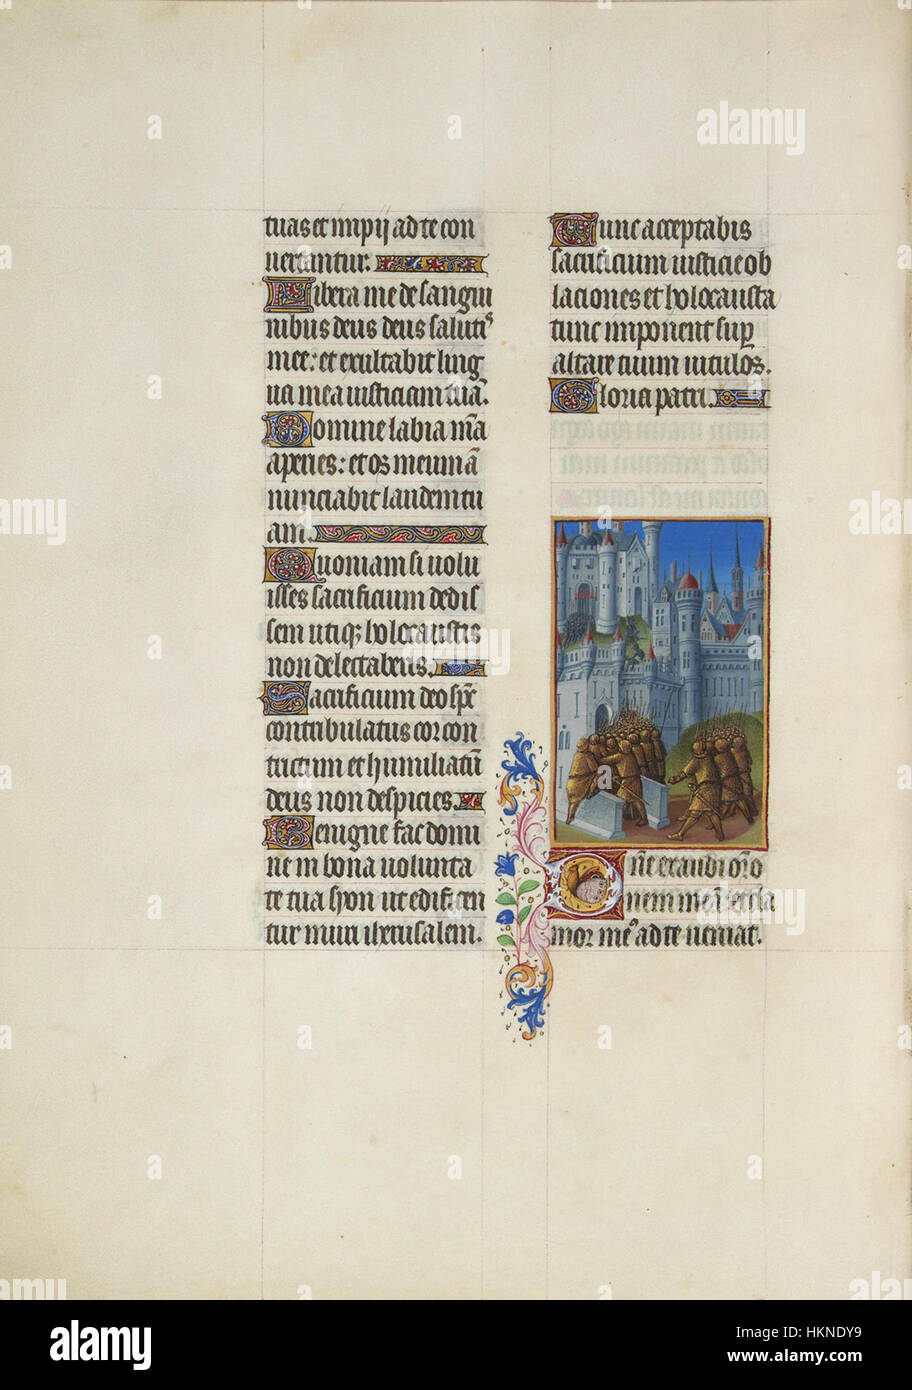 tuas et impij ad te con
uertantur.
Libera me de sangui
nibus deus deus salutis
mee: et exultabit ling
ua mea iusticiam tuā.
Domine labia mea
aperies: et os meum ā
nunciabit laudem tu
am.
Quoniam si uolu
isses sacrificium dedis
sem utiqz holocaustis
non delectaberis.
Sacrificium deo spc
contribulatus cor con
tritum et humiliatū
deus non despicies.
Benigne fac domi
ne in bona uolunta
te tua syon ut edificen
tur muri iherusalem.
Tunc acceptabis
sacrificium iusticie ob
laciones et holocausta
tunc imponent sup
altare tuum uitulos.
Gloria patri.
Dñe exaudi orō
nem meā: et cla
mor meꝰ ad te ueniat.
alamy
a
alamy
Image ID: HKNDY9
www.alamy.com